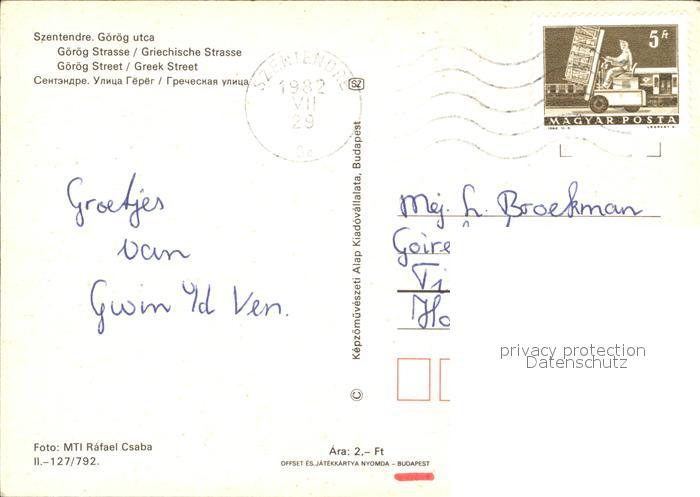 Szentendre. Görög utca
Görög Strasse / Griechische Strasse
Görög Street / Greek Street
Сентэндре. Улица Гёрёг / Греческая улица
SZENTENDRE
1982
VII
29
5 Ft
MAGYAR POSTA
Groetjes
van
Gwin v/d Ven.
© Képzőművészeti Alap Kiadóvállalata, Budapest
SZ
Mej. L. Broekman
Goire
Ti
Ho
privacy protection
Datenschutz
Foto: MTI Ráfael Csaba
II.–127/792.
Ára: 2,– Ft
OFFSET ÉS JÁTÉKKÁRTYA NYOMDA – BUDAPEST